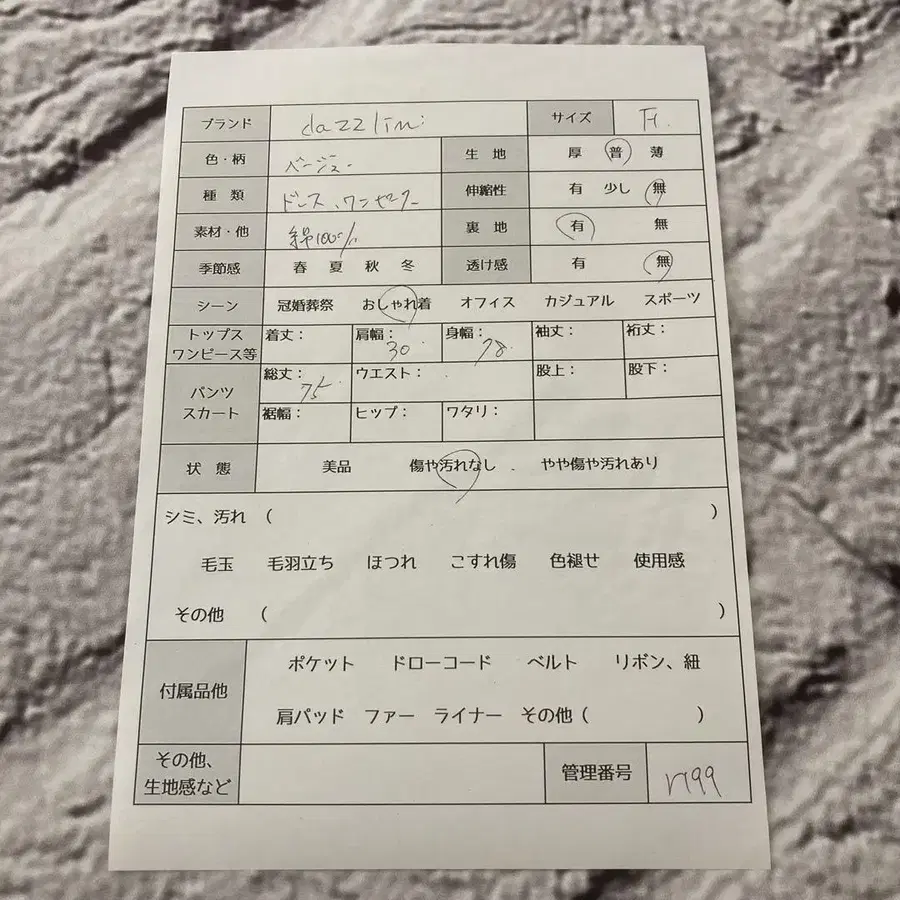 ブランド dazzlin サイズ F.
色・柄 ベージュ 生 地 厚 普 薄
種 類 ドレス、ワンピース 伸縮性 有 少し 無
素材・他 綿100% 裏 地 有 無
季節感 春 夏 秋 冬 透け感 有 無
シーン 冠婚葬祭 おしゃれ着 オフィス カジュアル スポーツ
トップス
ワンピース等 着丈： 肩幅：30 身幅：78 袖丈： 裄丈：
パンツ
スカート 総丈：75 ウエスト： 股上： 股下：
裾幅： ヒップ： ワタリ：
状 態 美品 傷や汚れなし . やや傷や汚れあり
シミ、汚れ （ ）
毛玉 毛羽立ち ほつれ こすれ傷 色褪せ 使用感
その他 （ ）
付属品他 ポケット ドローコード ベルト リボン、紐
肩パッド ファー ライナー その他（ ）
その他、
生地感など 管理番号 r199